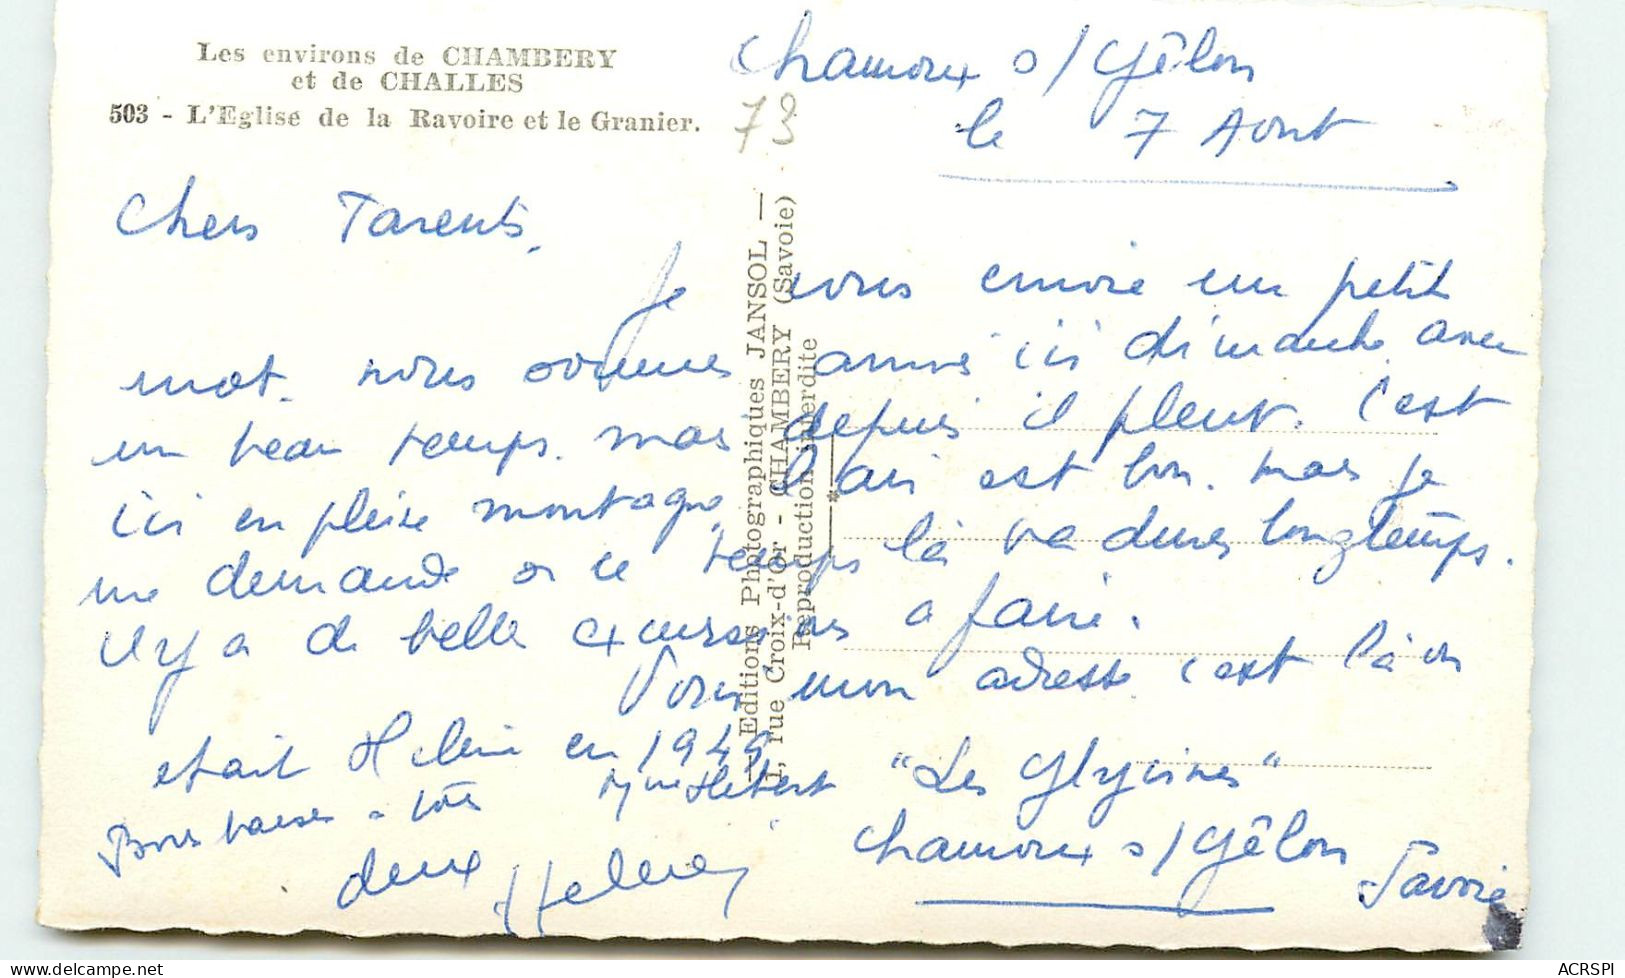 Les environs de CHAMBERY
et de CHALLES
503 - L'Eglise de la Ravoire et le Granier.
73
Chamoux s/ Gêlon
le 7 Aout
Chers Parents,
Je vous envoie un petit
mot. nous sommes arrivé ici dimanche avec
un beau temps. mais depuis il pleut. C'est
ici en pleine montagne, l'air est bon. mais je
me demande si ce temps là va durer longtemps.
il y a de belle excursions a faire.
Voici mon adresse c'est là où
etait Helène en 1945
Mme Hebert "Les Glycines"
Chamoux s/ Gêlon
Savoie
Bons baisers a tous
deux
— Editions Photographiques JANSOL —
1, rue Croix-d'Or - CHAMBERY (Savoie)
Reproduction interdite
ACRSPI